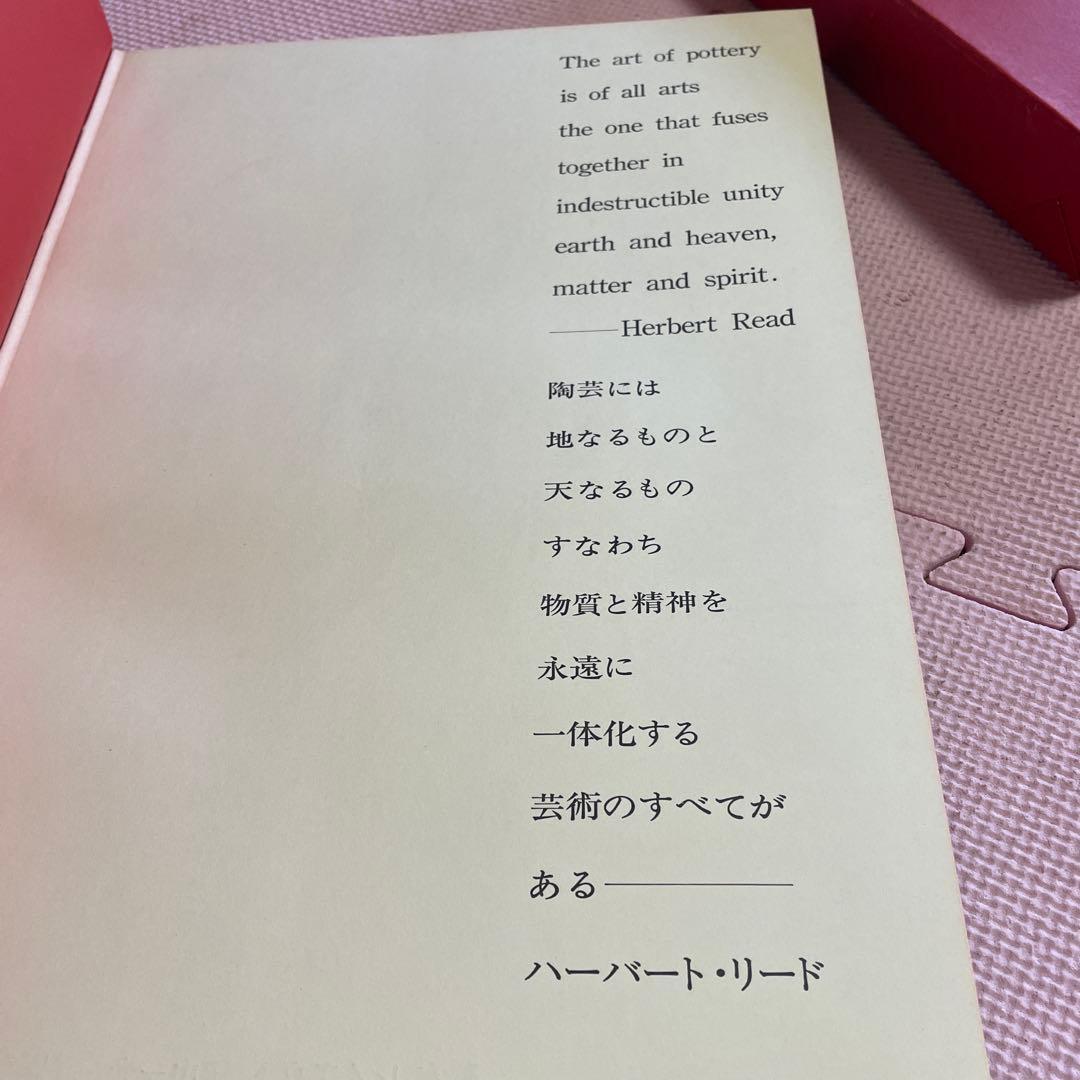 The art of pottery
is of all arts
the one that fuses
together in
indestructible unity
earth and heaven,
matter and spirit.
――Herbert Read
陶芸には
地なるものと
天なるもの
すなわち
物質と精神を
永遠に
一体化する
芸術のすべてが
ある――――
ハーバート・リード